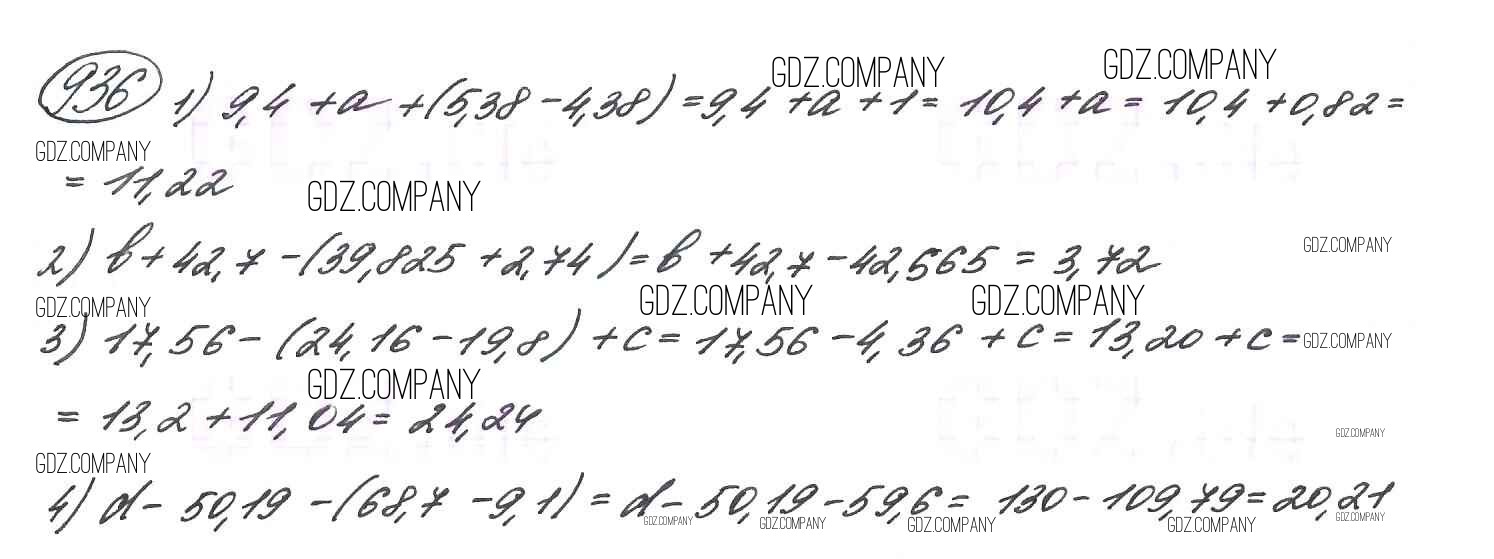 936 1) 9,4 + a + (5,38 - 4,38) = 9,4 + a + 1 = 10,4 + a = 10,4 + 0,82 =
GDZ.COMPANY GDZ.COMPANY
GDZ.COMPANY
= 11,22 GDZ.COMPANY
2) b + 42,7 - (39,825 + 2,74) = b + 42,7 - 42,565 = 3,72 GDZ.COMPANY
GDZ.COMPANY GDZ.COMPANY GDZ.COMPANY
3) 17,56 - (24,16 - 19,8) + c = 17,56 - 4,36 + c = 13,20 + c = GDZ.COMPANY
GDZ.COMPANY
= 13,2 + 11,04 = 24,24 GDZ.COMPANY
GDZ.COMPANY
4) d - 50,19 - (68,7 - 9,1) = d - 50,19 - 59,6 = 130 - 109,79 = 20,21
GDZ.COMPANY GDZ.COMPANY GDZ.COMPANY GDZ.COMPANY GDZ.COMPANY